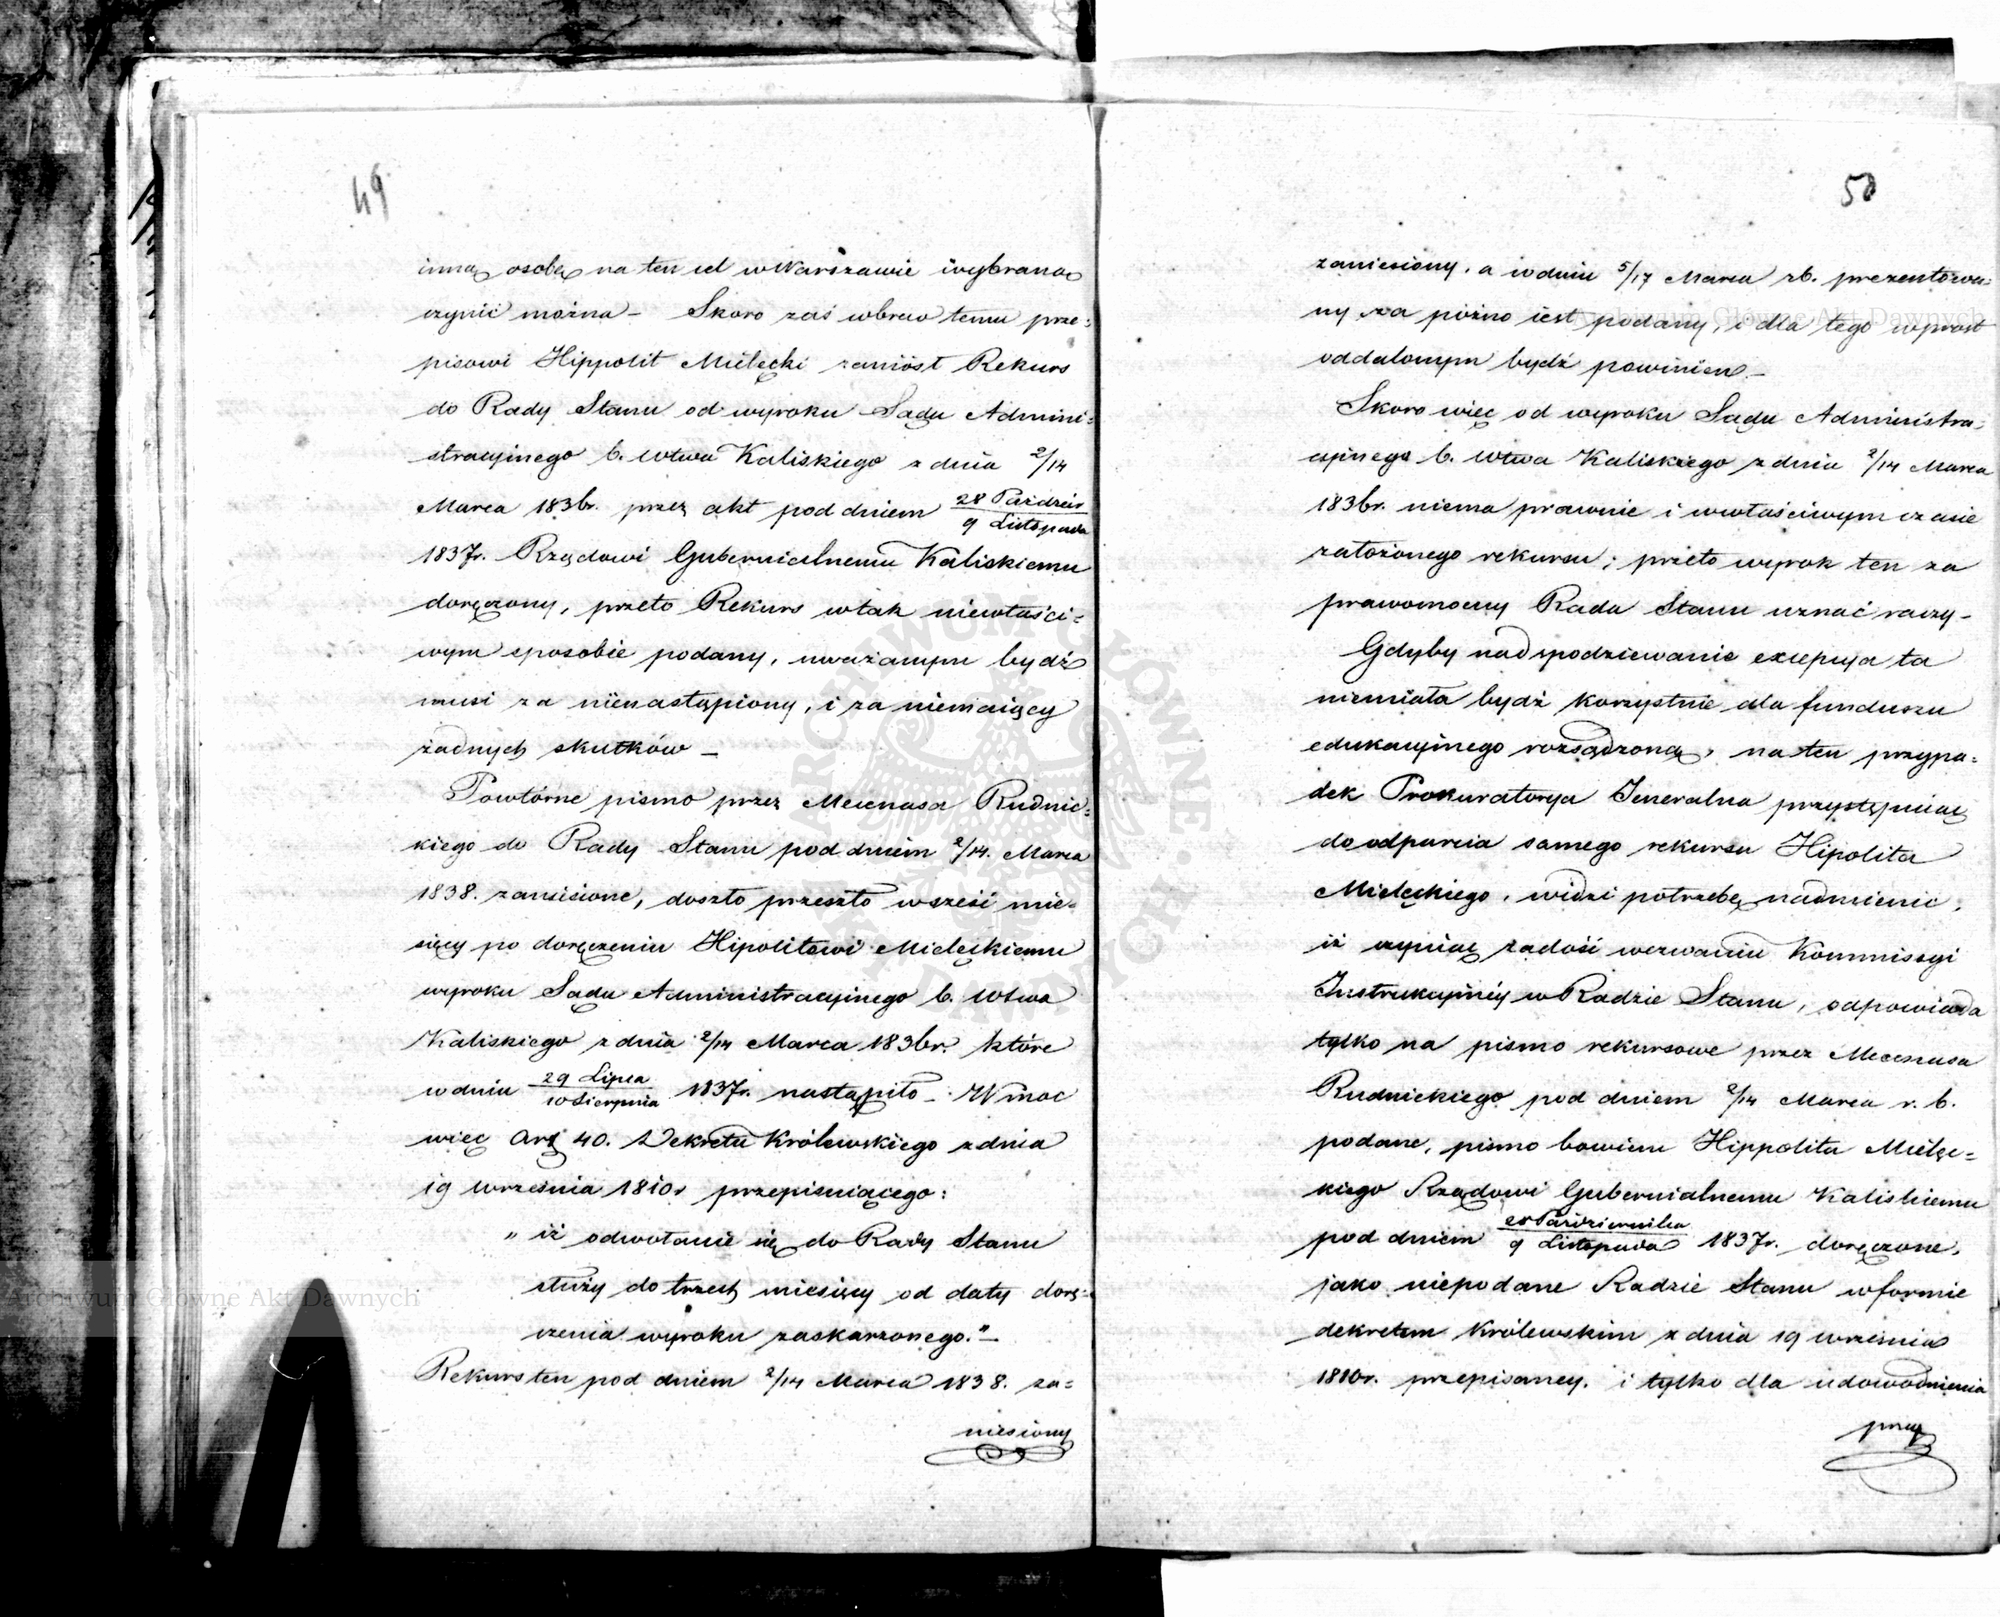 49
inną osobę na ten cel w Warszawie wybraną
czynić można – Skoro zaś wbrew temu prze=
pisowi Hippolit Mielęcki zaniósł Rekurs
do Rady Stanu od wyroku Sądu Admini=
stracyinego b. Wtwa Kaliskiego z dnia 2/14
Marca 1836r. przez akt pod dniem 28 Paździer / 9 Listopada
1837r. Rządowi Gubernialnemu Kaliskiemu
doręczony, przeto Rekurs w tak niewłaści=
wym sposobie podany, uważanym bydź
musi za nienastąpiony, i za niemaiący
żadnych skutków –
Powtórne pismo przez Mecenasa Rudnic=
kiego do Rady Stanu pod dniem 2/14. Marca
1838. zaniesione, doszło przeszło w sześć mie=
sięcy po doręczeniu Hipolitowi Mielęckiemu
wyroku Sądu Administracyinego b. Wtwa
Kaliskiego z dnia 2/14 Marca 1836r. które
w dniu 29 Lipca / 10 Sierpnia 1837r. nastąpiło – W moc
więc Art 40. Dekretu Królewskiego z dnia
19 Września 1810r przepisuiącego:
„ iż odwołanie się do Rady Stanu
służy do trzech miesięcy od daty dorę=
czenia wyroku zaskarzonego." –
Rekurs ten pod dniem 2/14 Marca 1838. za=
niesiony
50
zaniesiony, a w dniu 5/17 Marca rb. prezentowa=
ny za późno iest podany, i dla tego wprost
oddalonym bydź powinien –
Skoro więc od wyroku Sądu Administra=
cyinego b. Wtwa Kaliskiego z dnia 2/14 Marca
1836r. niema prawnie i w właściwym czasie
założonego rekursu; przeto wyrok ten za
prawomocny Rada Stanu uznać raczy –
Gdyby nad spodziewanie excepcya ta
niemiała bydź korzystnie dla funduszu
edukacyinego rozsądzoną, na ten przypa=
dek Prokuratorya Jeneralna przystępuiąc
do odparcia samego rekursu Hipolita
Mielęckiego, widzi potrzebę nadmienić,
iż czyniąc zadość wezwaniu Kommissyi
Instrukcyinéy w Radzie Stanu, odpowiada
tylko na pismo rekursowe przez Mecenasa
Rudnickiego pod dniem 2/14 Marca r. b.
podane, pismo bowiem Hippolita Mielęc=
kiego Rządowi Gubernialnemu Kaliskiemu
pod dniem 28 Października / 9 Listopada 1837r. doręczone,
jako niepodane Radzie Stanu w formie
dekretem Królewskim z dnia 19 Września
1810r. przepisaney, i tylko dla udowodnienia
Archiwum Główne Akt Dawnych
Archiwum Główne Akt Dawnych
ARCHIWUM GŁÓWNE AKT DAWNYCH